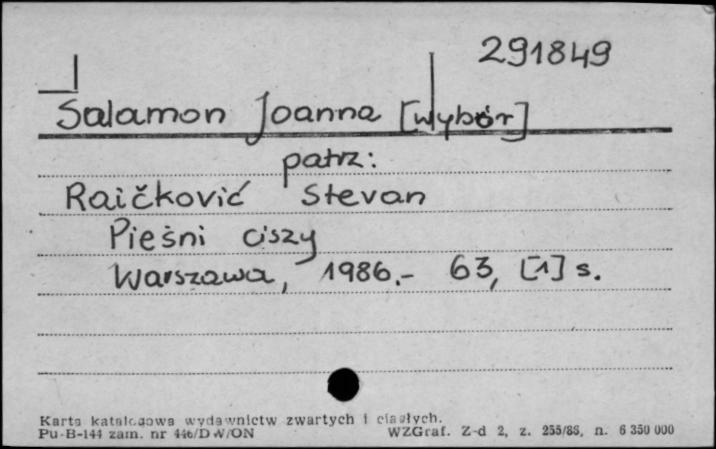 291849
Salamon Joanna [Wybór]
patrz:
Raičković Stevan
Pieśni ciszy
Warszawa, 1986.- 63, [1] s.
Karta katalogowa wydawnictw zwartych i ciągłych.
Pu-B-144 zam. nr 446/DW/ON WZGraf. Z-d 2, z. 255/86, n. 6 350 000